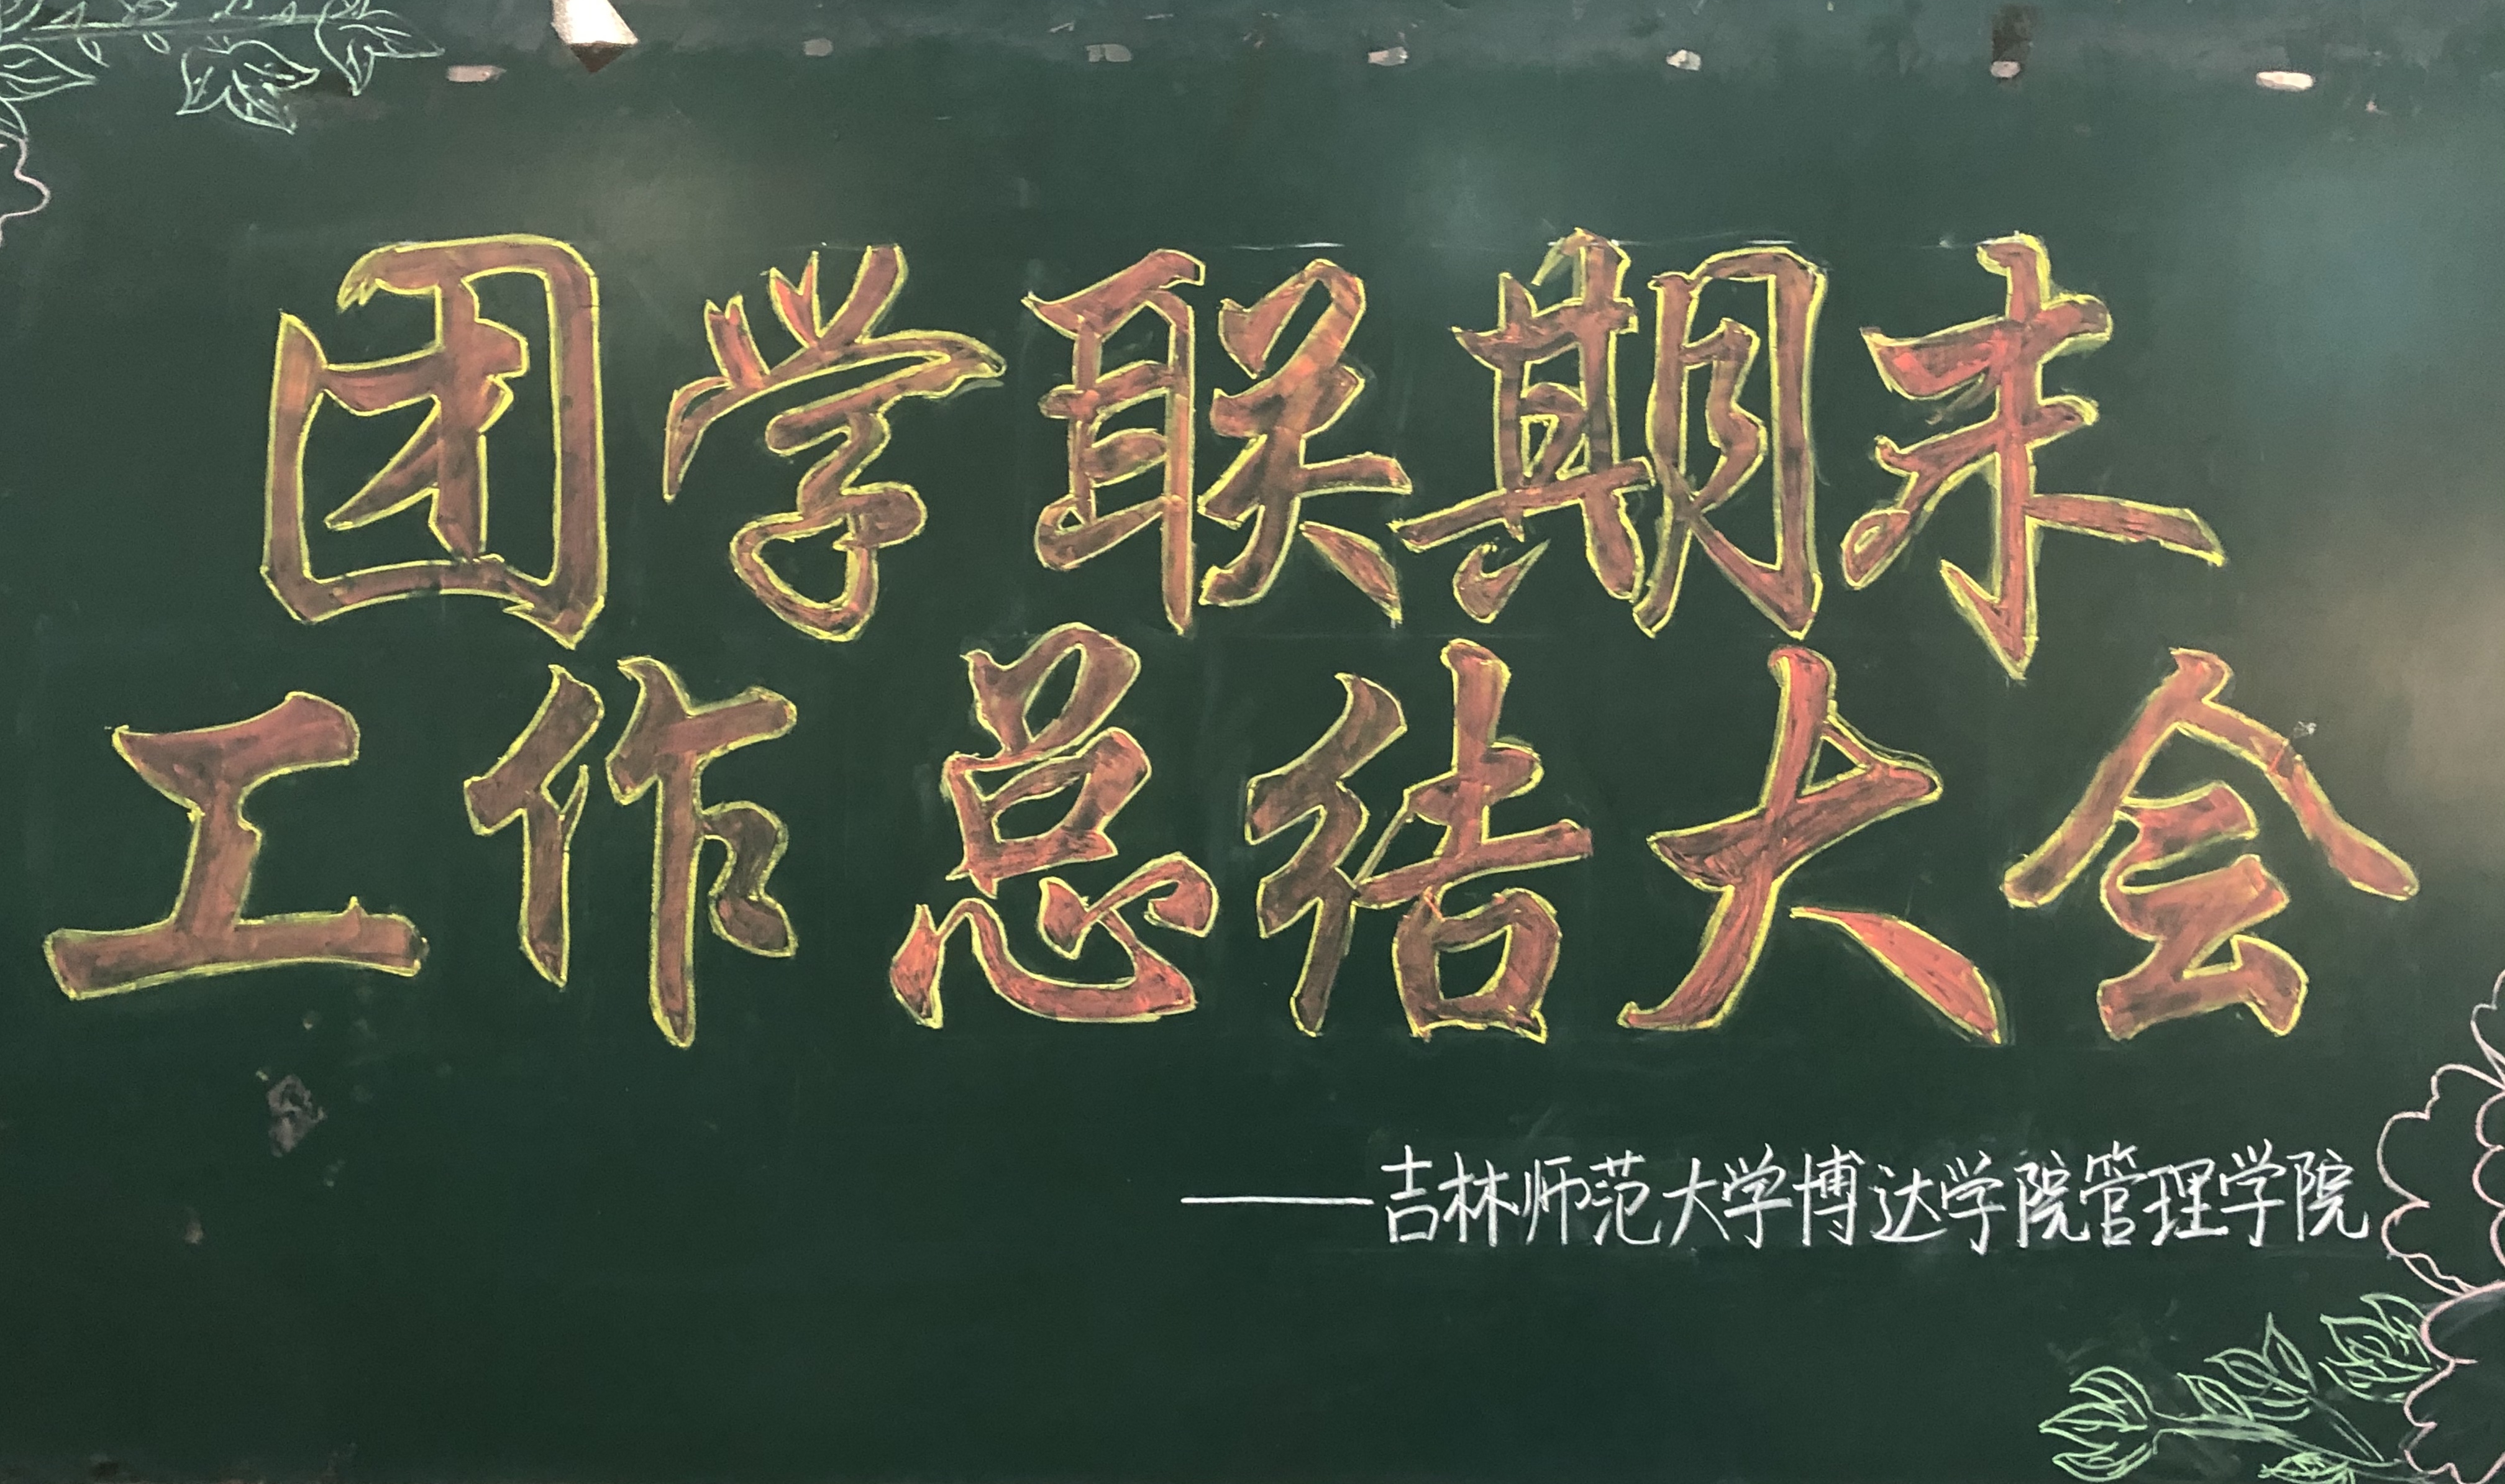 团学联期末
工作总结大会
——吉林师范大学博达学院管理学院